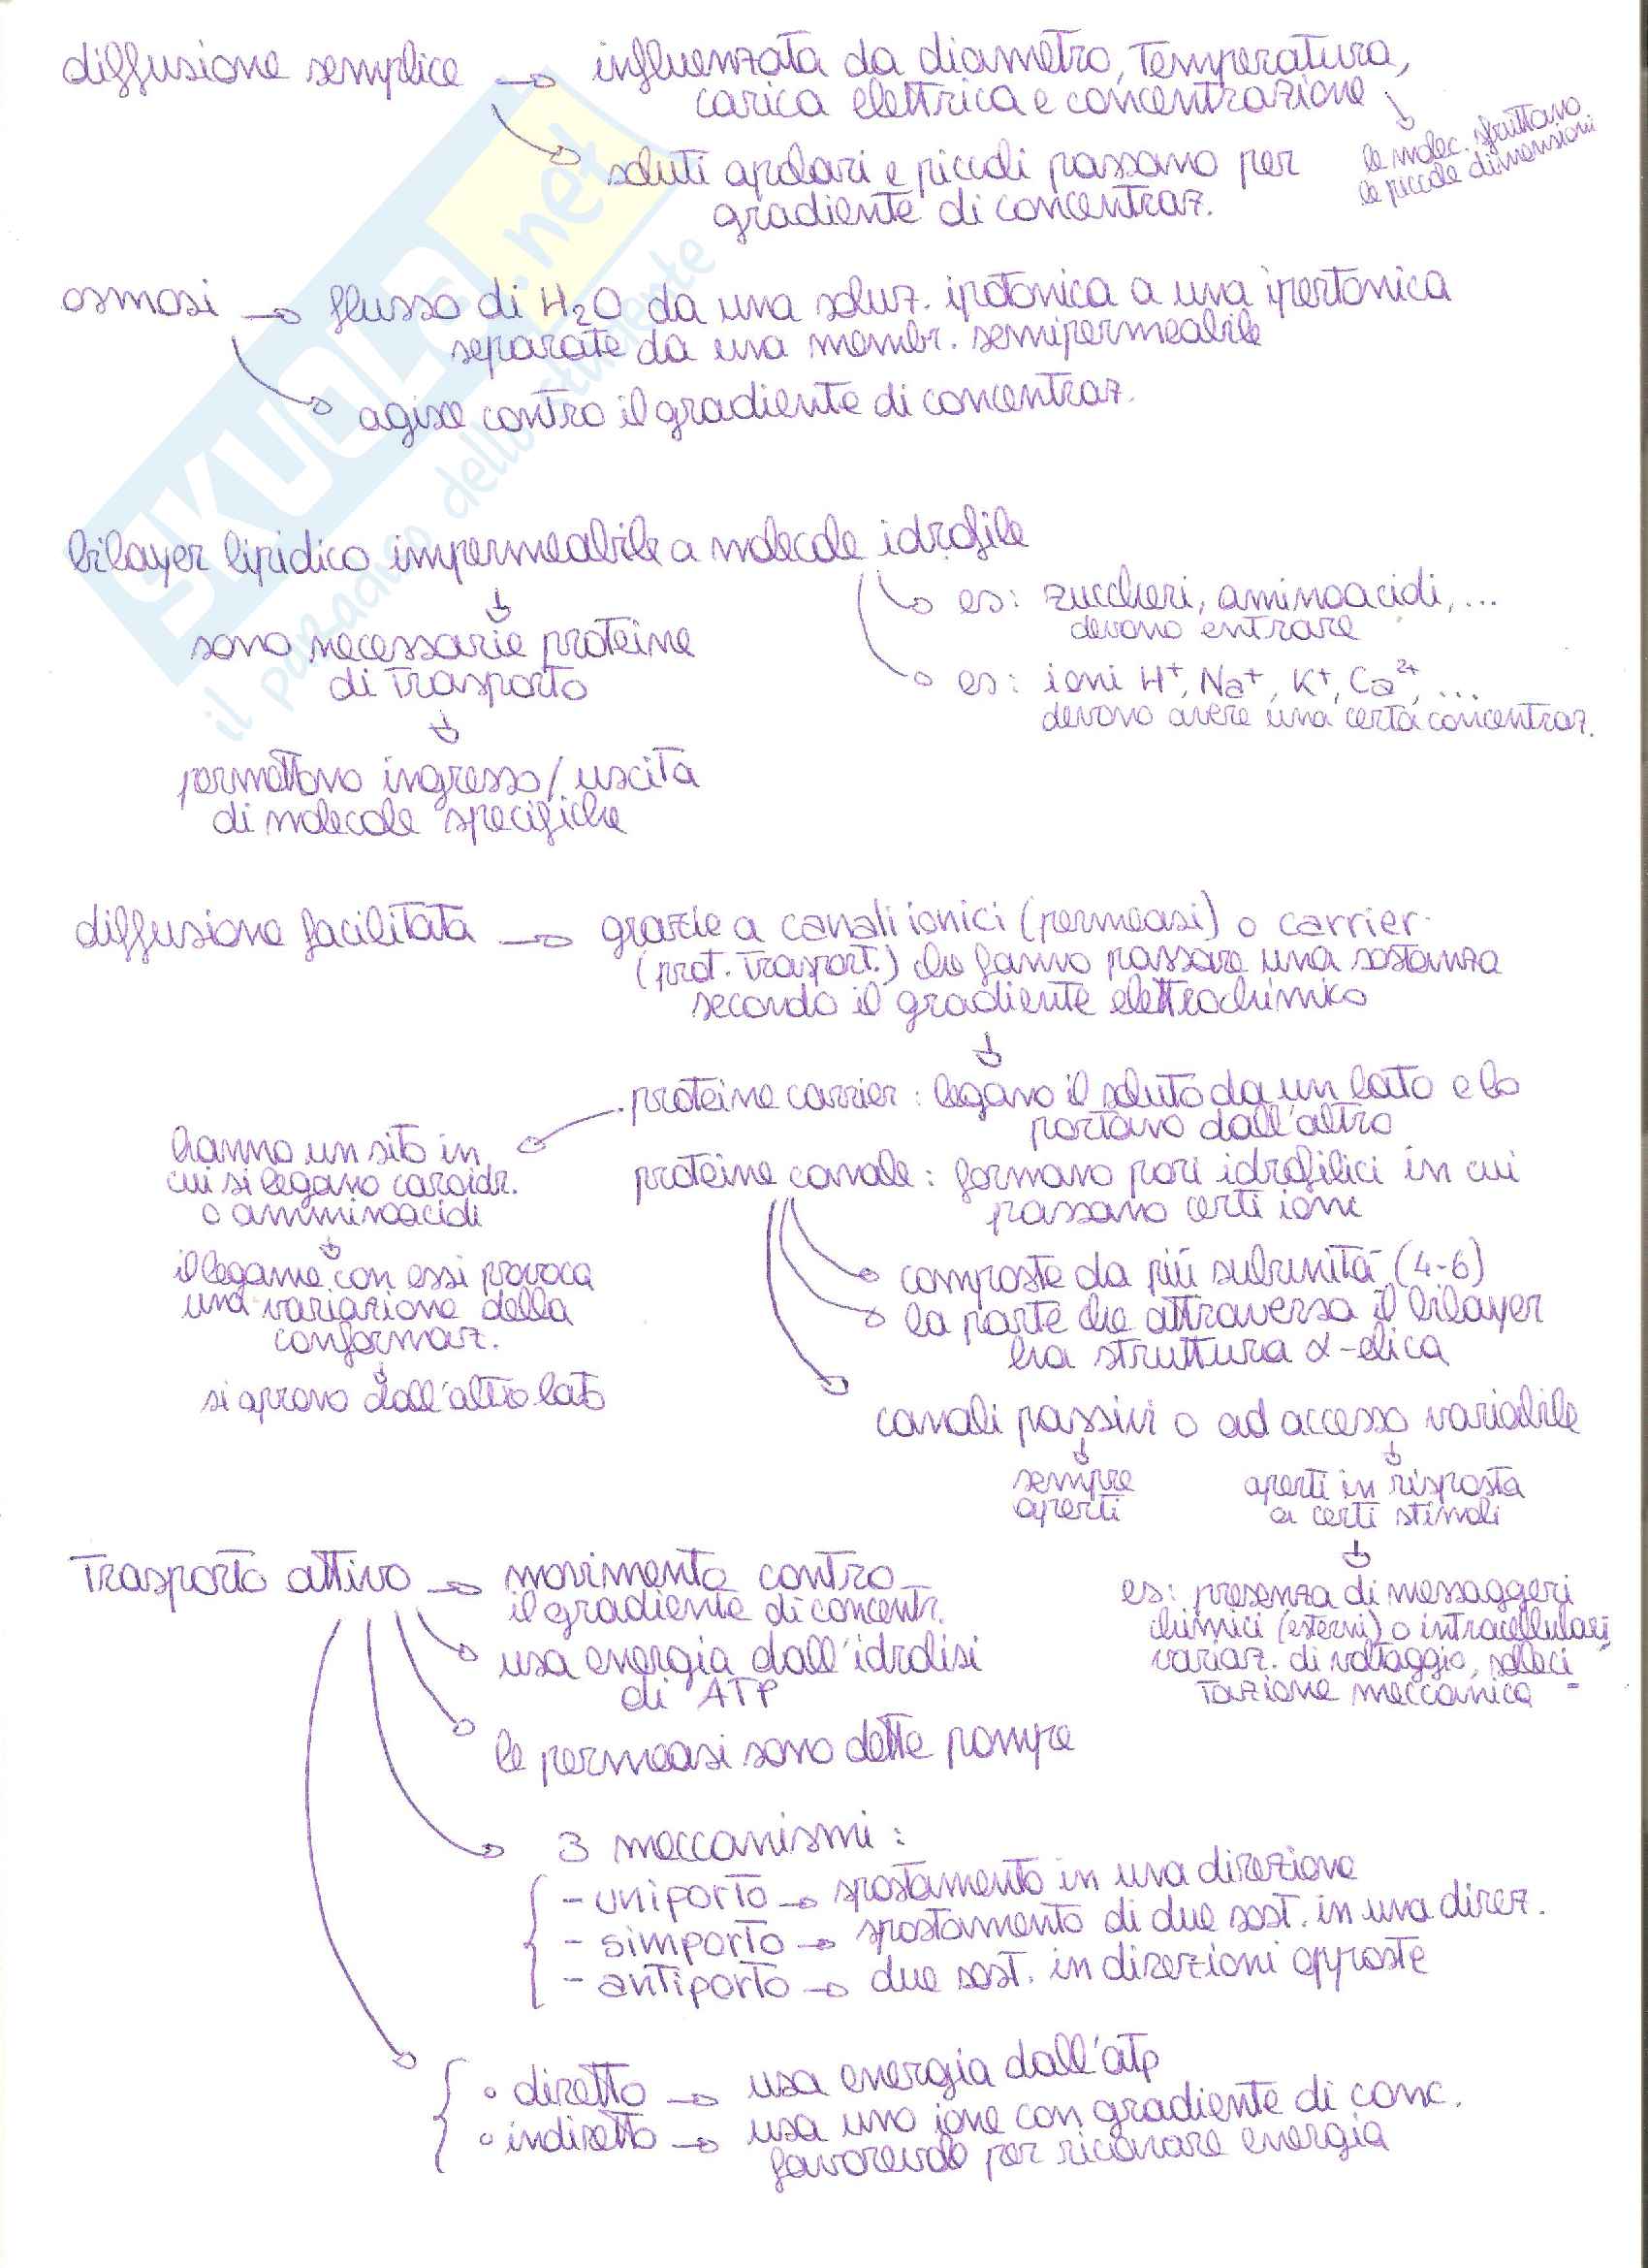 diffusione semplice → influenzata da diametro, temperatura,
carica elettrica e concentrazione
le molec. sfruttano
le piccole dimensioni
soluti apolari e piccoli passano per
gradiente di concentraz.
osmosi → flusso di H₂O da una soluz. ipotonica a una ipertonica
separate da una membr. semipermeabile
agisce contro il gradiente di concentraz.
bilayer lipidico impermeabile a molecole idrofile
es: zuccheri, aminoacidi, ...
devono entrare
es: ioni H⁺, Na⁺, K⁺, Ca²⁺, ...
devono avere una certa concentraz.
sono necessarie proteine
di trasporto
permettono ingresso/uscita
di molecole specifiche
diffusione facilitata → grazie a canali ionici (permeasi) o carrier
(prot. trasport.) che fanno passare una sostanza
secondo il gradiente elettrochimico
proteine carrier: legano il soluto da un lato e lo
portano dall'altro
hanno un sito in
cui si legano carboidr.
o amminoacidi
il legame con essi provoca
una variazione della
conformaz.
si aprono dall'altro lato
proteine canale: formano pori idrofilici in cui
passano certi ioni
composte da più subunità (4-6)
la parte che attraversa il bilayer
ha struttura α-elica
canali passivi o ad accesso variabile
sempre
aperti
aperti in risposta
a certi stimoli
es: presenza di messaggeri
chimici (esterni) o intracellulari,
variaz. di voltaggio, solleci
tazione meccanica
trasporto attivo → movimento contro
il gradiente di concentr.
usa energia dall'idrolisi
di ATP
le permeasi sono dette pompe
3 meccanismi:
- uniporto → spostamento in una direzione
- simporto → spostamento di due sost. in una direz.
- antiporto → due sost. in direzioni opposte
• diretto → usa energia dall'atp
• indiretto → usa uno ione con gradiente di conc.
favorevole per ricavare energia
SKUOLA.net
il paradiso dello studente